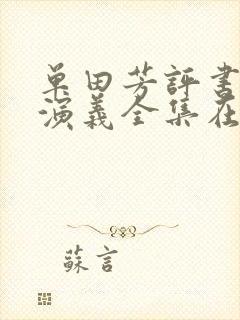 单田芳評書
演義全集在
蘇言